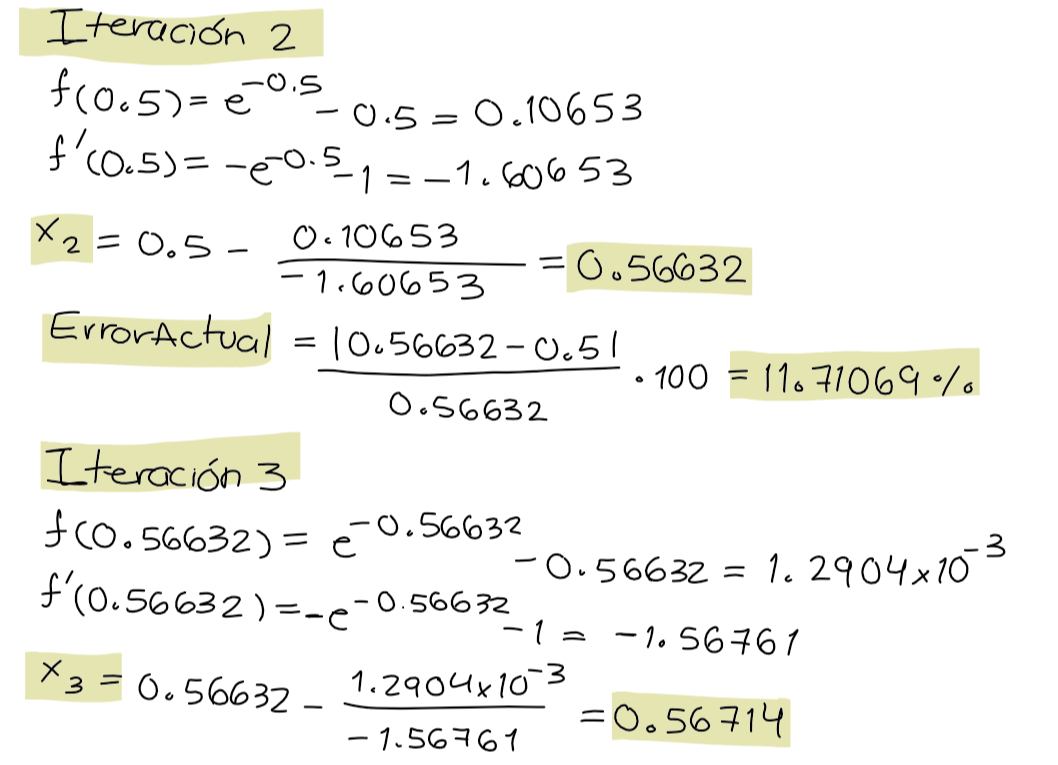 Iteración 2
f(0.5) = e^-0.5 - 0.5 = 0.10653
f'(0.5) = -e^-0.5 - 1 = -1.60653
x2 = 0.5 - 0.10653 / -1.60653 = 0.56632
ErrorActual = |0.56632 - 0.5| / 0.56632 · 100 = 11.71069 %
Iteración 3
f(0.56632) = e^-0.56632 - 0.56632 = 1.2904x10^-3
f'(0.56632) = -e^-0.56632 - 1 = -1.56761
x3 = 0.56632 - 1.2904x10^-3 / -1.56761 = 0.56714